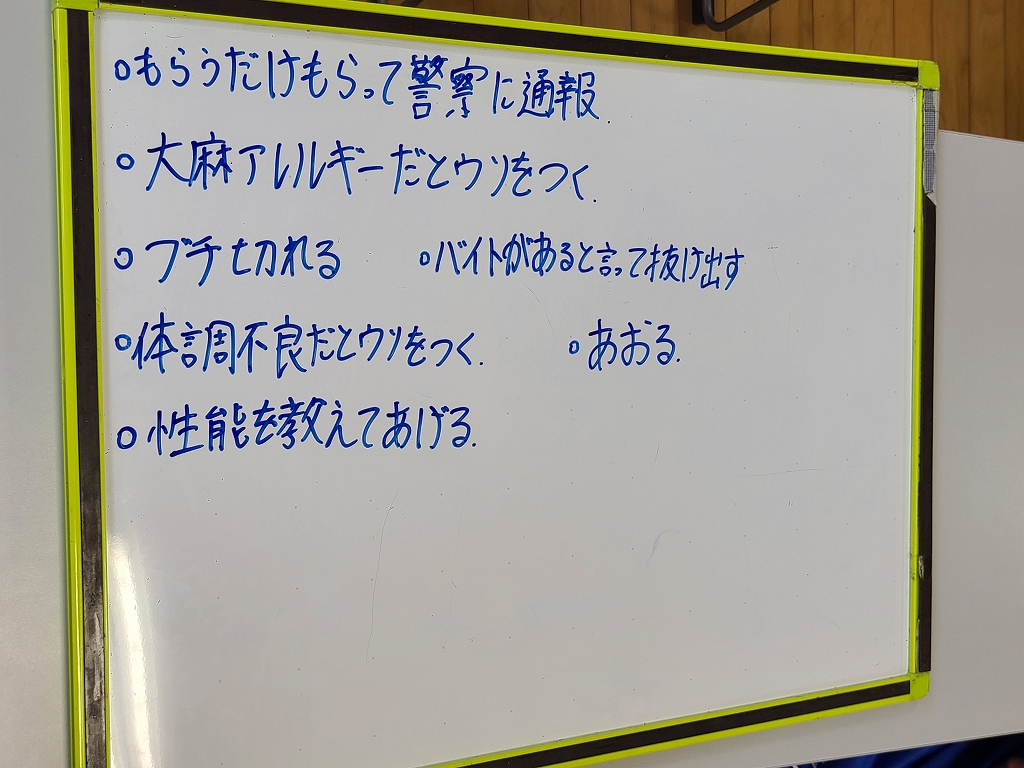 ○もらうだけもらって警察に通報.
○大麻アレルギーだとウソをつく.
○ブチ切れる ○バイトがあると言って抜け出す
○体調不良だとウソをつく. ○あおる.
○性能を教えてあげる.